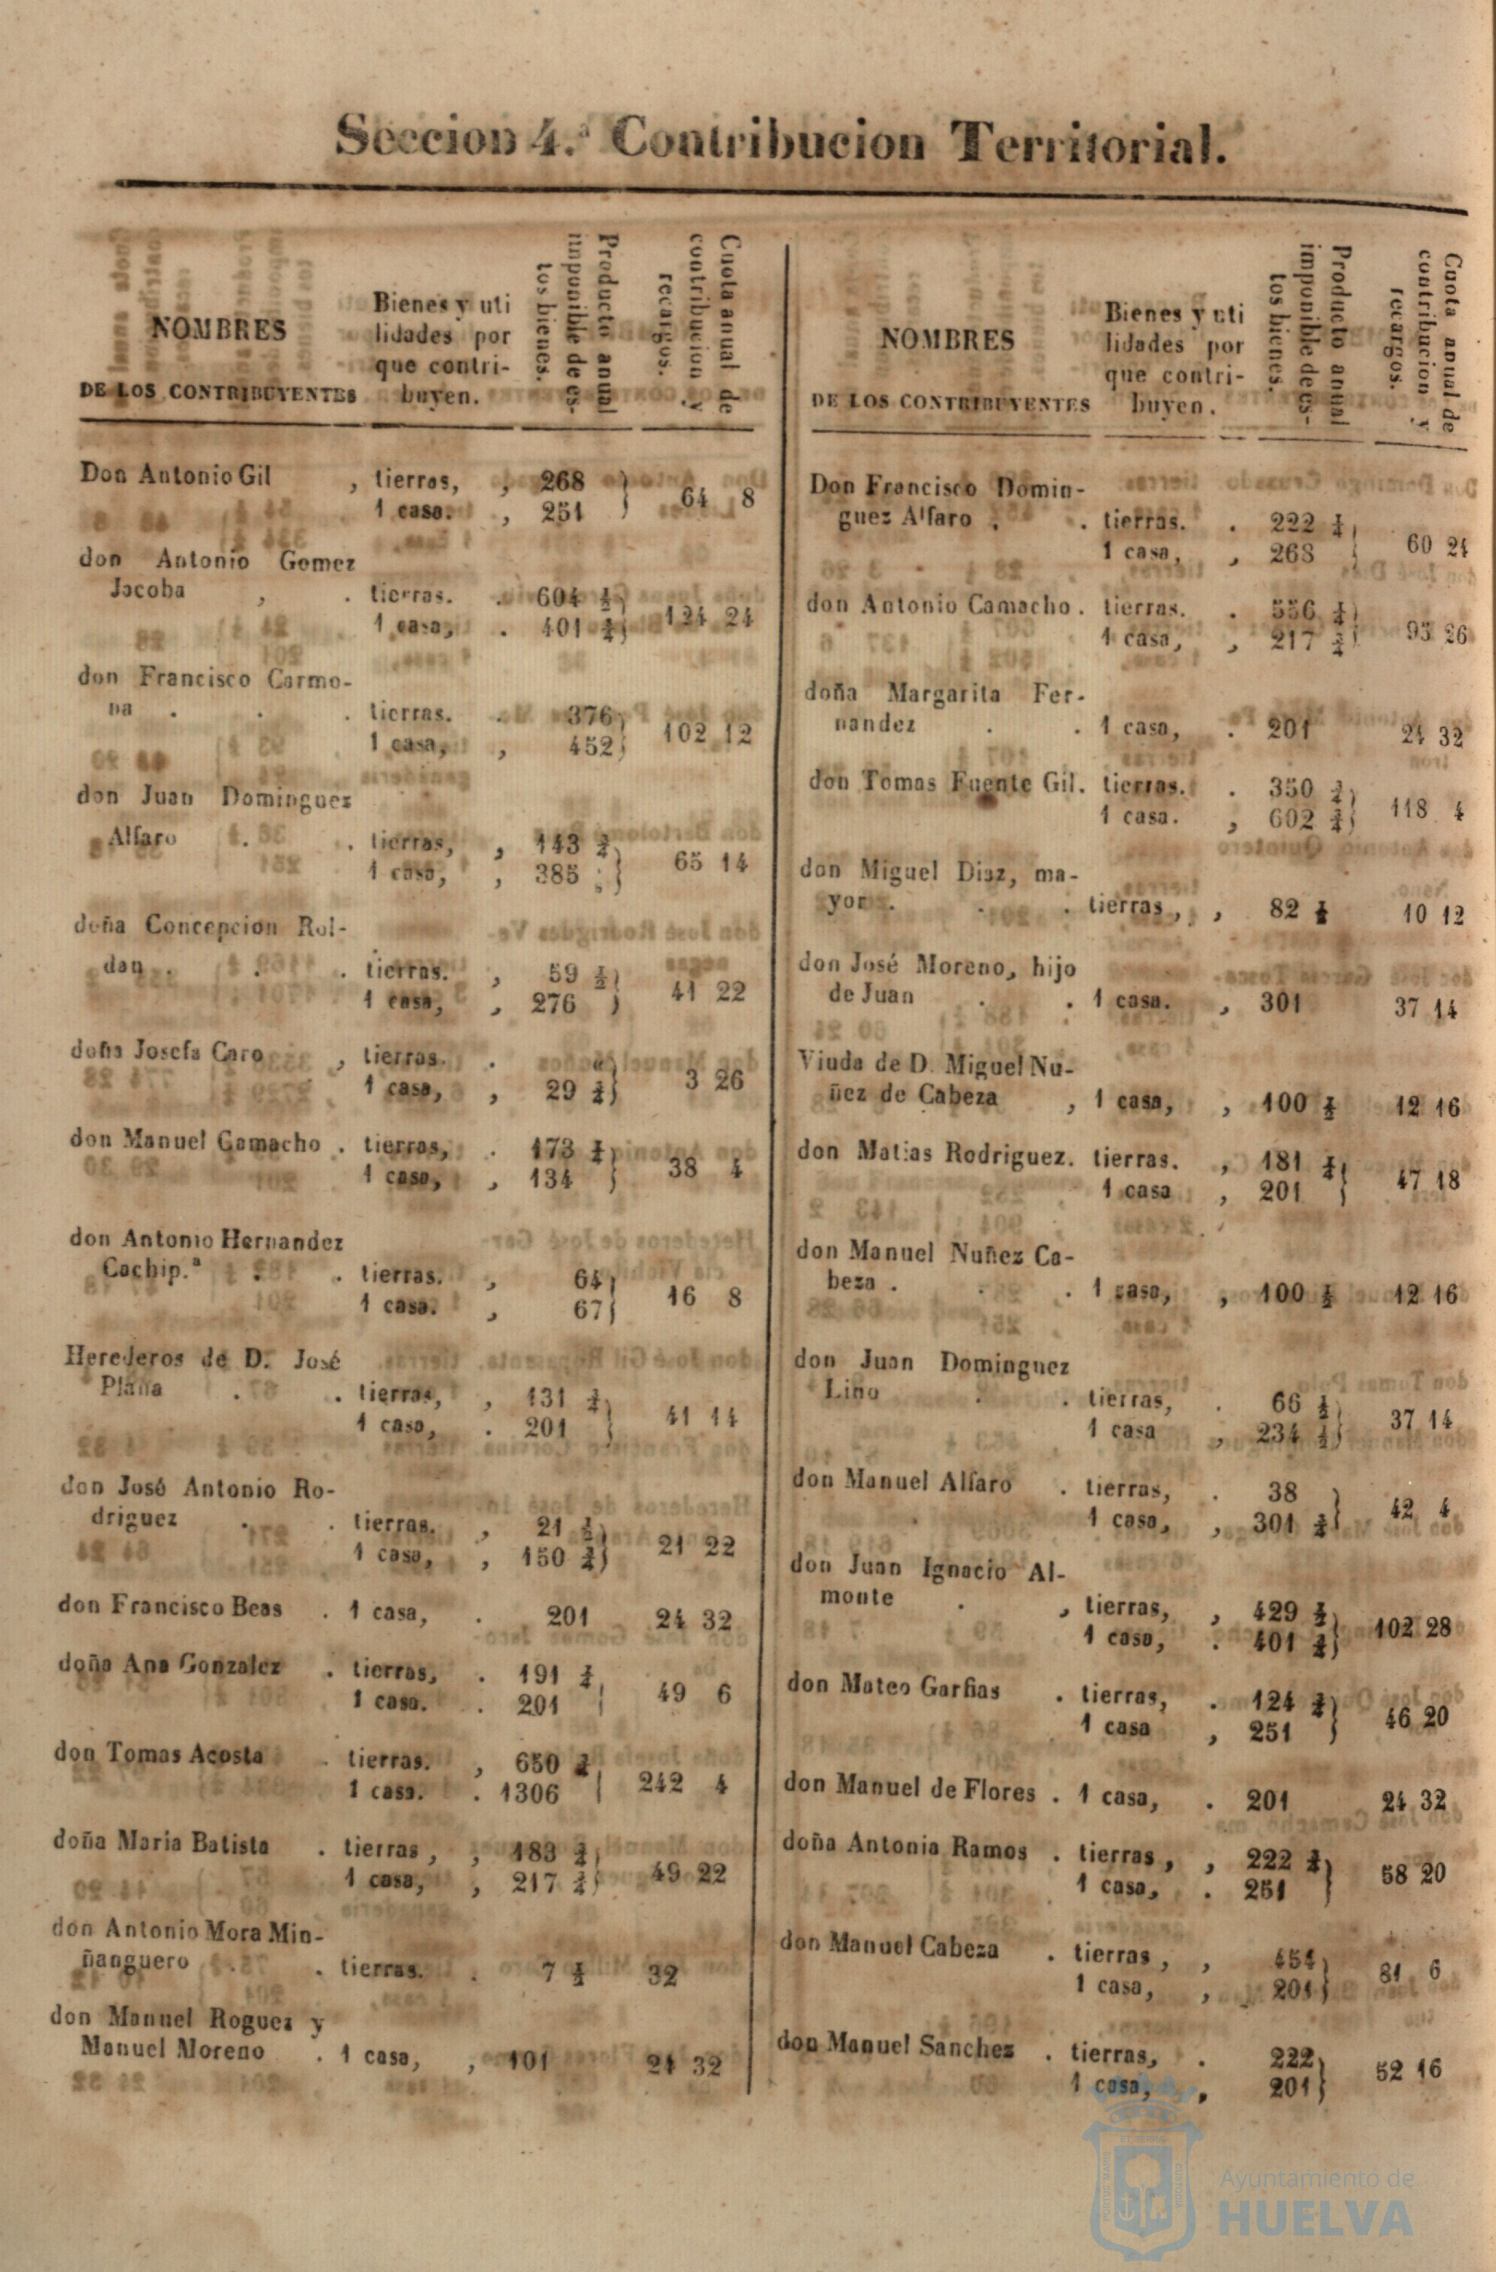 Seccion 4.ª Contribucion Territorial.
NOMBRES
DE LOS CONTRIBUYENTES
Bienes y uti
lidades por
que contri-
buyen.
Producto anual
imponible de es-
tos bienes.
Cuota anual de
contribucion y
recargos.
Don Antonio Gil , tierras, , 268
1 casa. , 251 } 64 8
don Antonio Gomez
Jacoba , . tierras. . 604
1 casa, . 401 } 124 24
don Francisco Carmo-
na . . . tierras. . 376
1 casa, , 452 } 102 12
don Juan Dominguez
Alfaro . . tierras, , 143
1 casa, , 385 } 65 14
doña Concepcion Rol-
dan . . . tierras. , 59 ½
1 casa, , 276 } 41 22
doña Josefa Caro , tierras. . "
1 casa, , 29 } 3 26
don Manuel Camacho . tierras, . 173
1 casa, , 134 } 38 4
don Antonio Hernandez
Cachip.ª . . tierras. , 64
1 casa. , 67 } 16 8
Herederos de D. José
Plaña . . tierras, , 131
1 casa, . 201 } 41 14
don José Antonio Ro-
driguez . . tierras. , 21
1 casa, , 150 } 21 22
don Francisco Beas . 1 casa, . 201 24 32
doña Ana Gonzalez . tierras, . 191
1 casa. . 201 } 49 6
don Tomas Acosta . tierras. , 650
1 casa. . 1306 } 242 4
doña Maria Batista . tierras , , 183
1 casa, , 217 } 49 22
don Antonio Mora Min-
ñanguero . . tierras. . 7 32
don Manuel Roguez y
Manuel Moreno . 1 casa, , 101 24 32
NOMBRES
DE LOS CONTRIBUYENTES
Bienes y uti
lidades por
que contri-
buyen.
Producto anual
imponible de es-
tos bienes.
Cuota anual de
contribucion y
recargos.
Don Francisco Domin-
guez Alfaro . . tierras. . 222
1 casa, , 268 } 60 24
don Antonio Camacho . tierras. . 556
1 casa, , 217 } 95 26
doña Margarita Fer-
nandez . . 1 casa, . 201 24 32
don Tomas Fuente Gil. tierras. . 350
1 casa. , 602 } 118 4
don Miguel Diaz, ma-
yor . . . tierras , , 82 10 12
don José Moreno, hijo
de Juan . . 1 casa. , 301 37 14
Viuda de D. Miguel Nu-
ñez de Cabeza , 1 casa, , 100 12 16
don Matias Rodriguez. tierras. , 181
1 casa , 201 } 47 18
don Manuel Nuñez Ca-
beza . . . 1 casa, , 100 12 16
don Juan Dominguez
Lino . . tierras, . 66
1 casa , 234 } 37 14
don Manuel Alfaro . tierras, . 38
1 casa, , 301 } 42 4
don Juan Ignacio Al-
monte . , tierras, , 429
1 casa, . 401 } 102 28
don Mateo Garfias . tierras, . 124
1 casa , 251 } 46 20
don Manuel de Flores . 1 casa, . 201 24 32
doña Antonia Ramos . tierras , , 222
1 casa, . 251 } 58 20
don Manuel Cabeza . tierras , , 454
1 casa, , 201 } 81 6
don Manuel Sanchez . tierras, . 222
1 casa, , 201 } 52 16
Ayuntamiento de
HUELVA